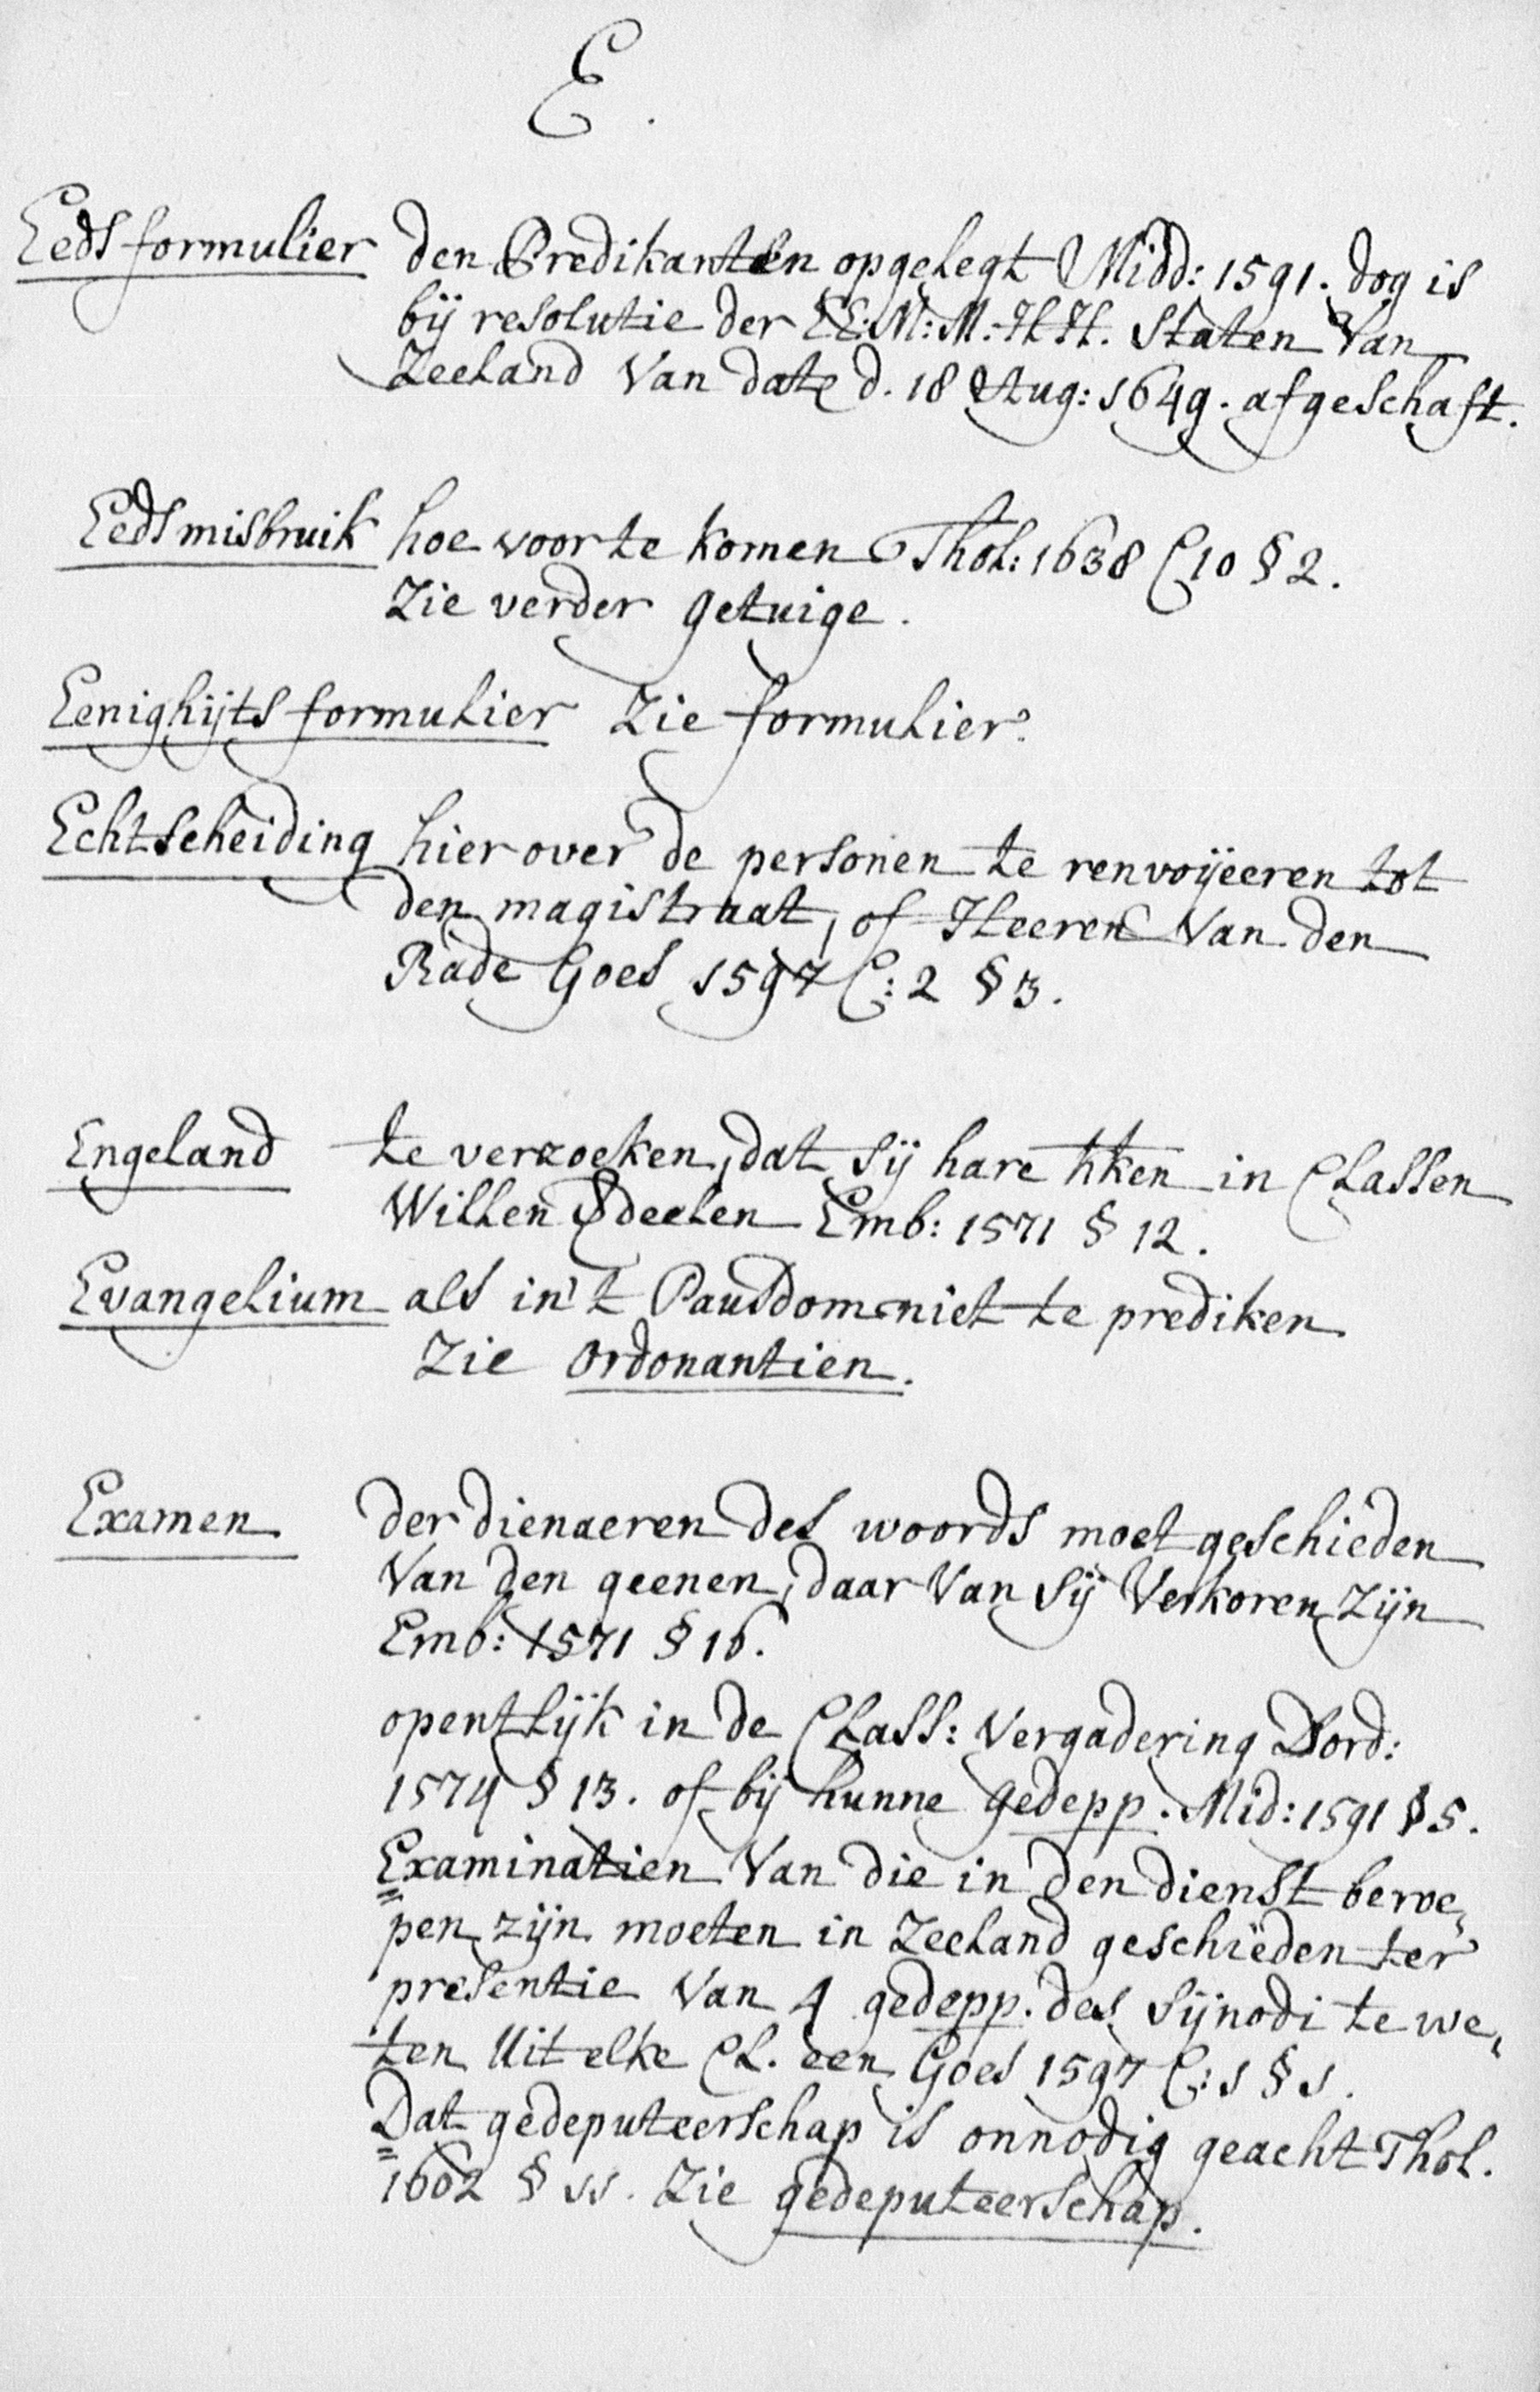 E.
Eedsformulier den Predikanten opgelegt Midd: 1591. dog is
bij resolutie der EE: M: M: HH. Staten van
Zeeland van date d. 18 Aug: 1649. afgeschaft.
Eedsmisbruik hoe voor te komen Thol: 1638 C 10 § 2.
Zie verder getuige.
Eenighijts formulier Zie formulier.
Echtscheiding hier over de personen te renvoijeeren tot
den magistraat, of Heeren van den
Rade Goes 1597 C: 2 § 3.
Engeland te verzoeken, dat sij hare kken in Classen
Willen deelen Emb: 1571 § 12.
Evangelium als in 't Pausdom niet te prediken
Zie ordonantien.
Examen der dienaeren des woords moet geschieden
Van den geenen, daar Van sij Verkoren zijn
Emb: 1571 § 16.
opentlijk in de Class: Vergadering Dord:
1574 § 13. of bij hunne gedepp. Mid: 1591 § 5.
Examinatien Van die in den dienst beroe„
pen zijn moeten in Zeeland geschieden ter
presentie van 4 gedepp. des Sijnodi te we„
ten Uit elke Cl. een Goes 1597 C: 1 § 1.
Dat gedeputeerschap is onnodig geacht Thol.
1602 § 11. Zie gedeputeerschap.